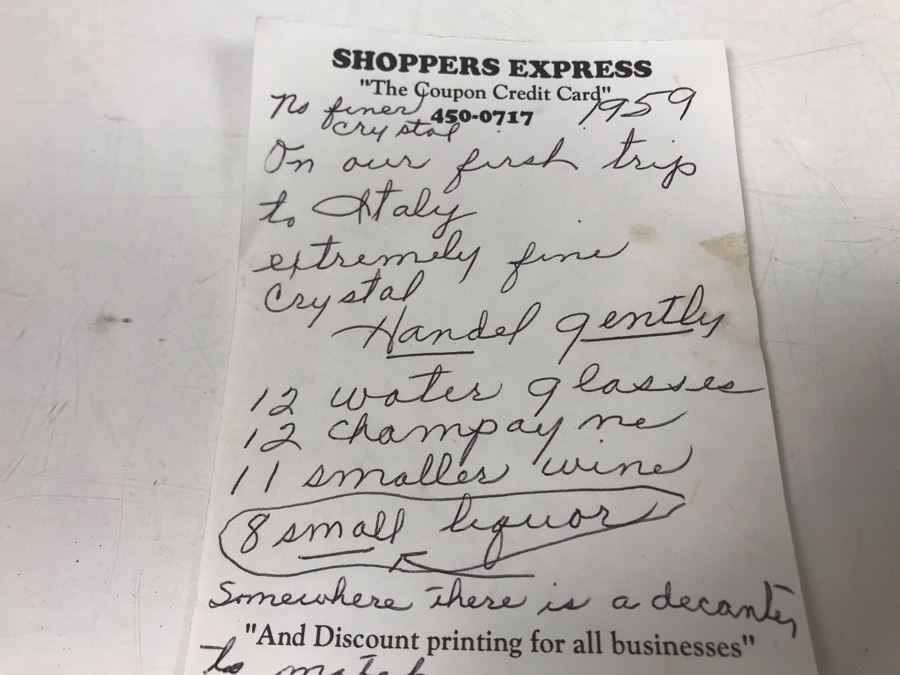 SHOPPERS EXPRESS
"The Coupon Credit Card"
No finer 450-0717 1959
crystal
On our first trip
to Italy
extremely fine
Crystal
Handel gently
12 water glasses
12 champayne
11 smaller wine
8 small liquor
Somewhere there is a decanter
"And Discount printing for all businesses"
to match